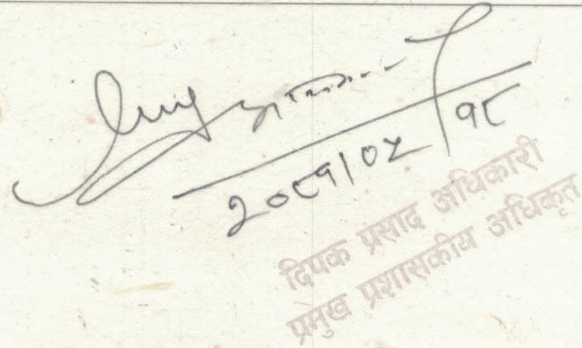 २०८१/०५/१८
दिपक प्रसाद अधिकारी
प्रमुख प्रशासकीय अधिकृत